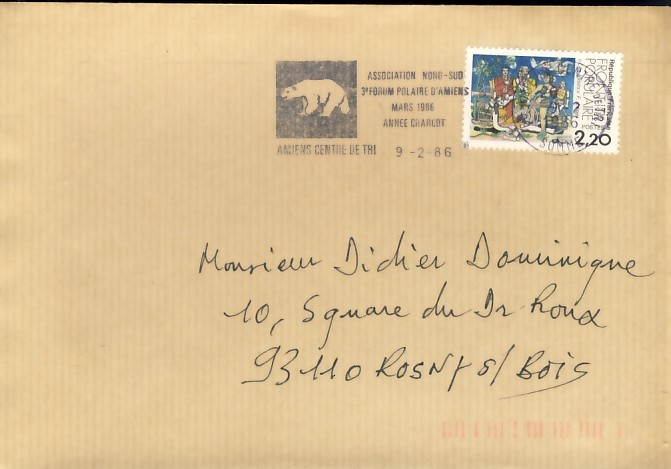 ASSOCIATION NORD-SUD
3e FORUM POLAIRE D'AMIENS
MARS 1986
ANNEE CHARCOT
AMIENS CENTRE DE TRI 9-2-86
République Française
FRONT POPULAIRE
2,20
SOMME
Monsieur Didier Dominique
10, Square du Dr Roux
93110 ROSNY s/ Bois